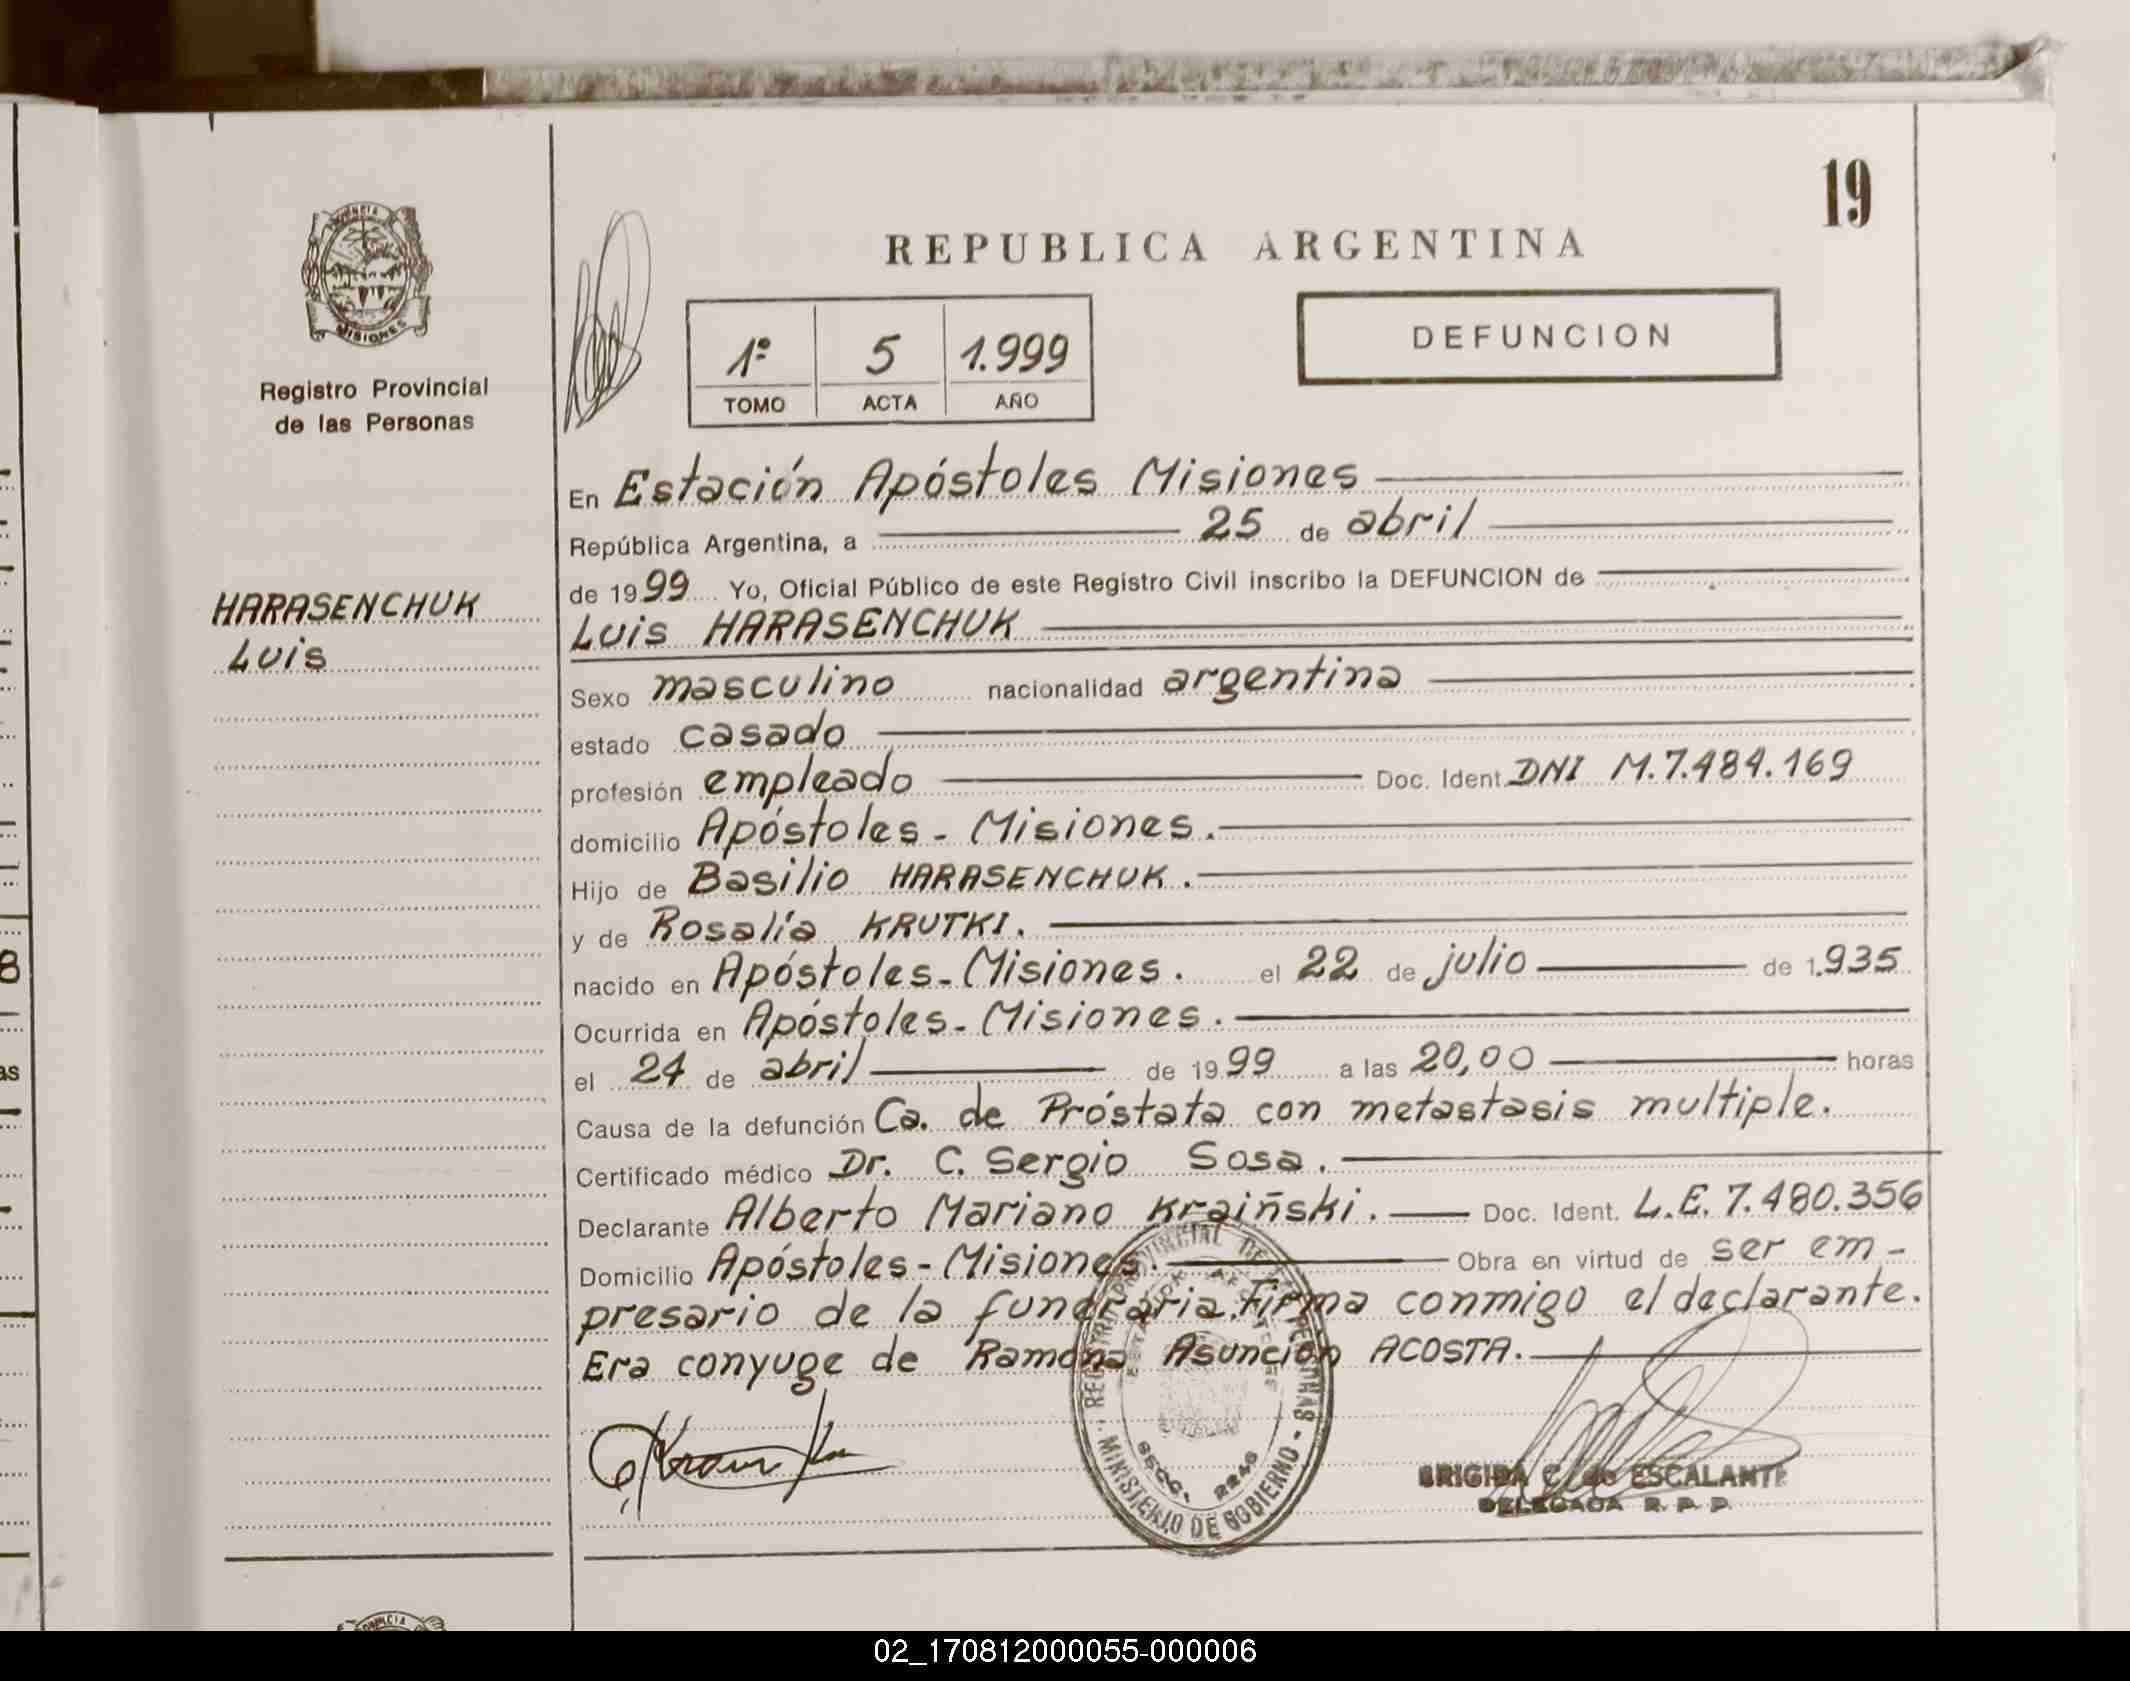 19
REPUBLICA ARGENTINA
PROVINCIA DE
MISIONES
Registro Provincial
de las Personas
1º 5 1.999
TOMO ACTA AÑO
DEFUNCION
HARASENCHUK
Luis
En Estación Apóstoles Misiones
República Argentina, a 25 de abril
de 1999 Yo, Oficial Público de este Registro Civil inscribo la DEFUNCION de
Luis HARASENCHUK
Sexo masculino nacionalidad argentina
estado casado
profesión empleado Doc. Ident. DNI M.7.484.169
domicilio Apóstoles - Misiones.
Hijo de Basilio HARASENCHUK.
y de Rosalía KRUTKI.
nacido en Apóstoles - Misiones. el 22 de julio de 1.935
Ocurrida en Apóstoles - Misiones.
el 24 de abril de 1999 a las 20,00 horas
Causa de la defunción Ca. de Próstata con metastasis multiple.
Certificado médico Dr. C. Sergio Sosa.
Declarante Alberto Mariano Kraiñski. Doc. Ident. L.E. 7.480.356
Domicilio Apóstoles - Misiones. Obra en virtud de ser em-
presario de la funeraria. Firma conmigo el declarante.
Era conyuge de Ramona Asunción ACOSTA.
REGISTRO PROVINCIAL DE LAS PERSONAS
SECC. 2246
MINISTERIO DE GOBIERNO
BRIGIDA C. de ESCALANTE
DELEGADA R. P. P.
8
as
02_170812000055-000006